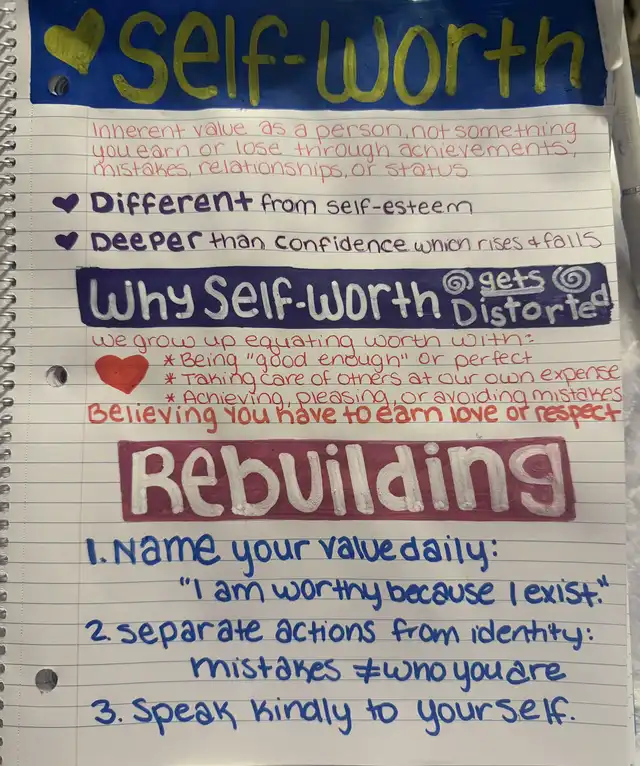 Self-Worth
Inherent value as a person, not something
you earn or lose through achievements,
mistakes, relationships, or status
Different from self-esteem
Deeper than confidence which rises & falls
Why Self-Worth gets Distorted
we grow up equating worth with:
* Being "good enough" or perfect
* Taking care of others at our own expense
* Achieving, pleasing, or avoiding mistakes
Believing you have to earn love or respect
Rebuilding
1. Name your value daily:
"I am worthy because I exist."
2. Separate actions from identity:
mistakes ≠ who you are
3. Speak kindly to yourself.